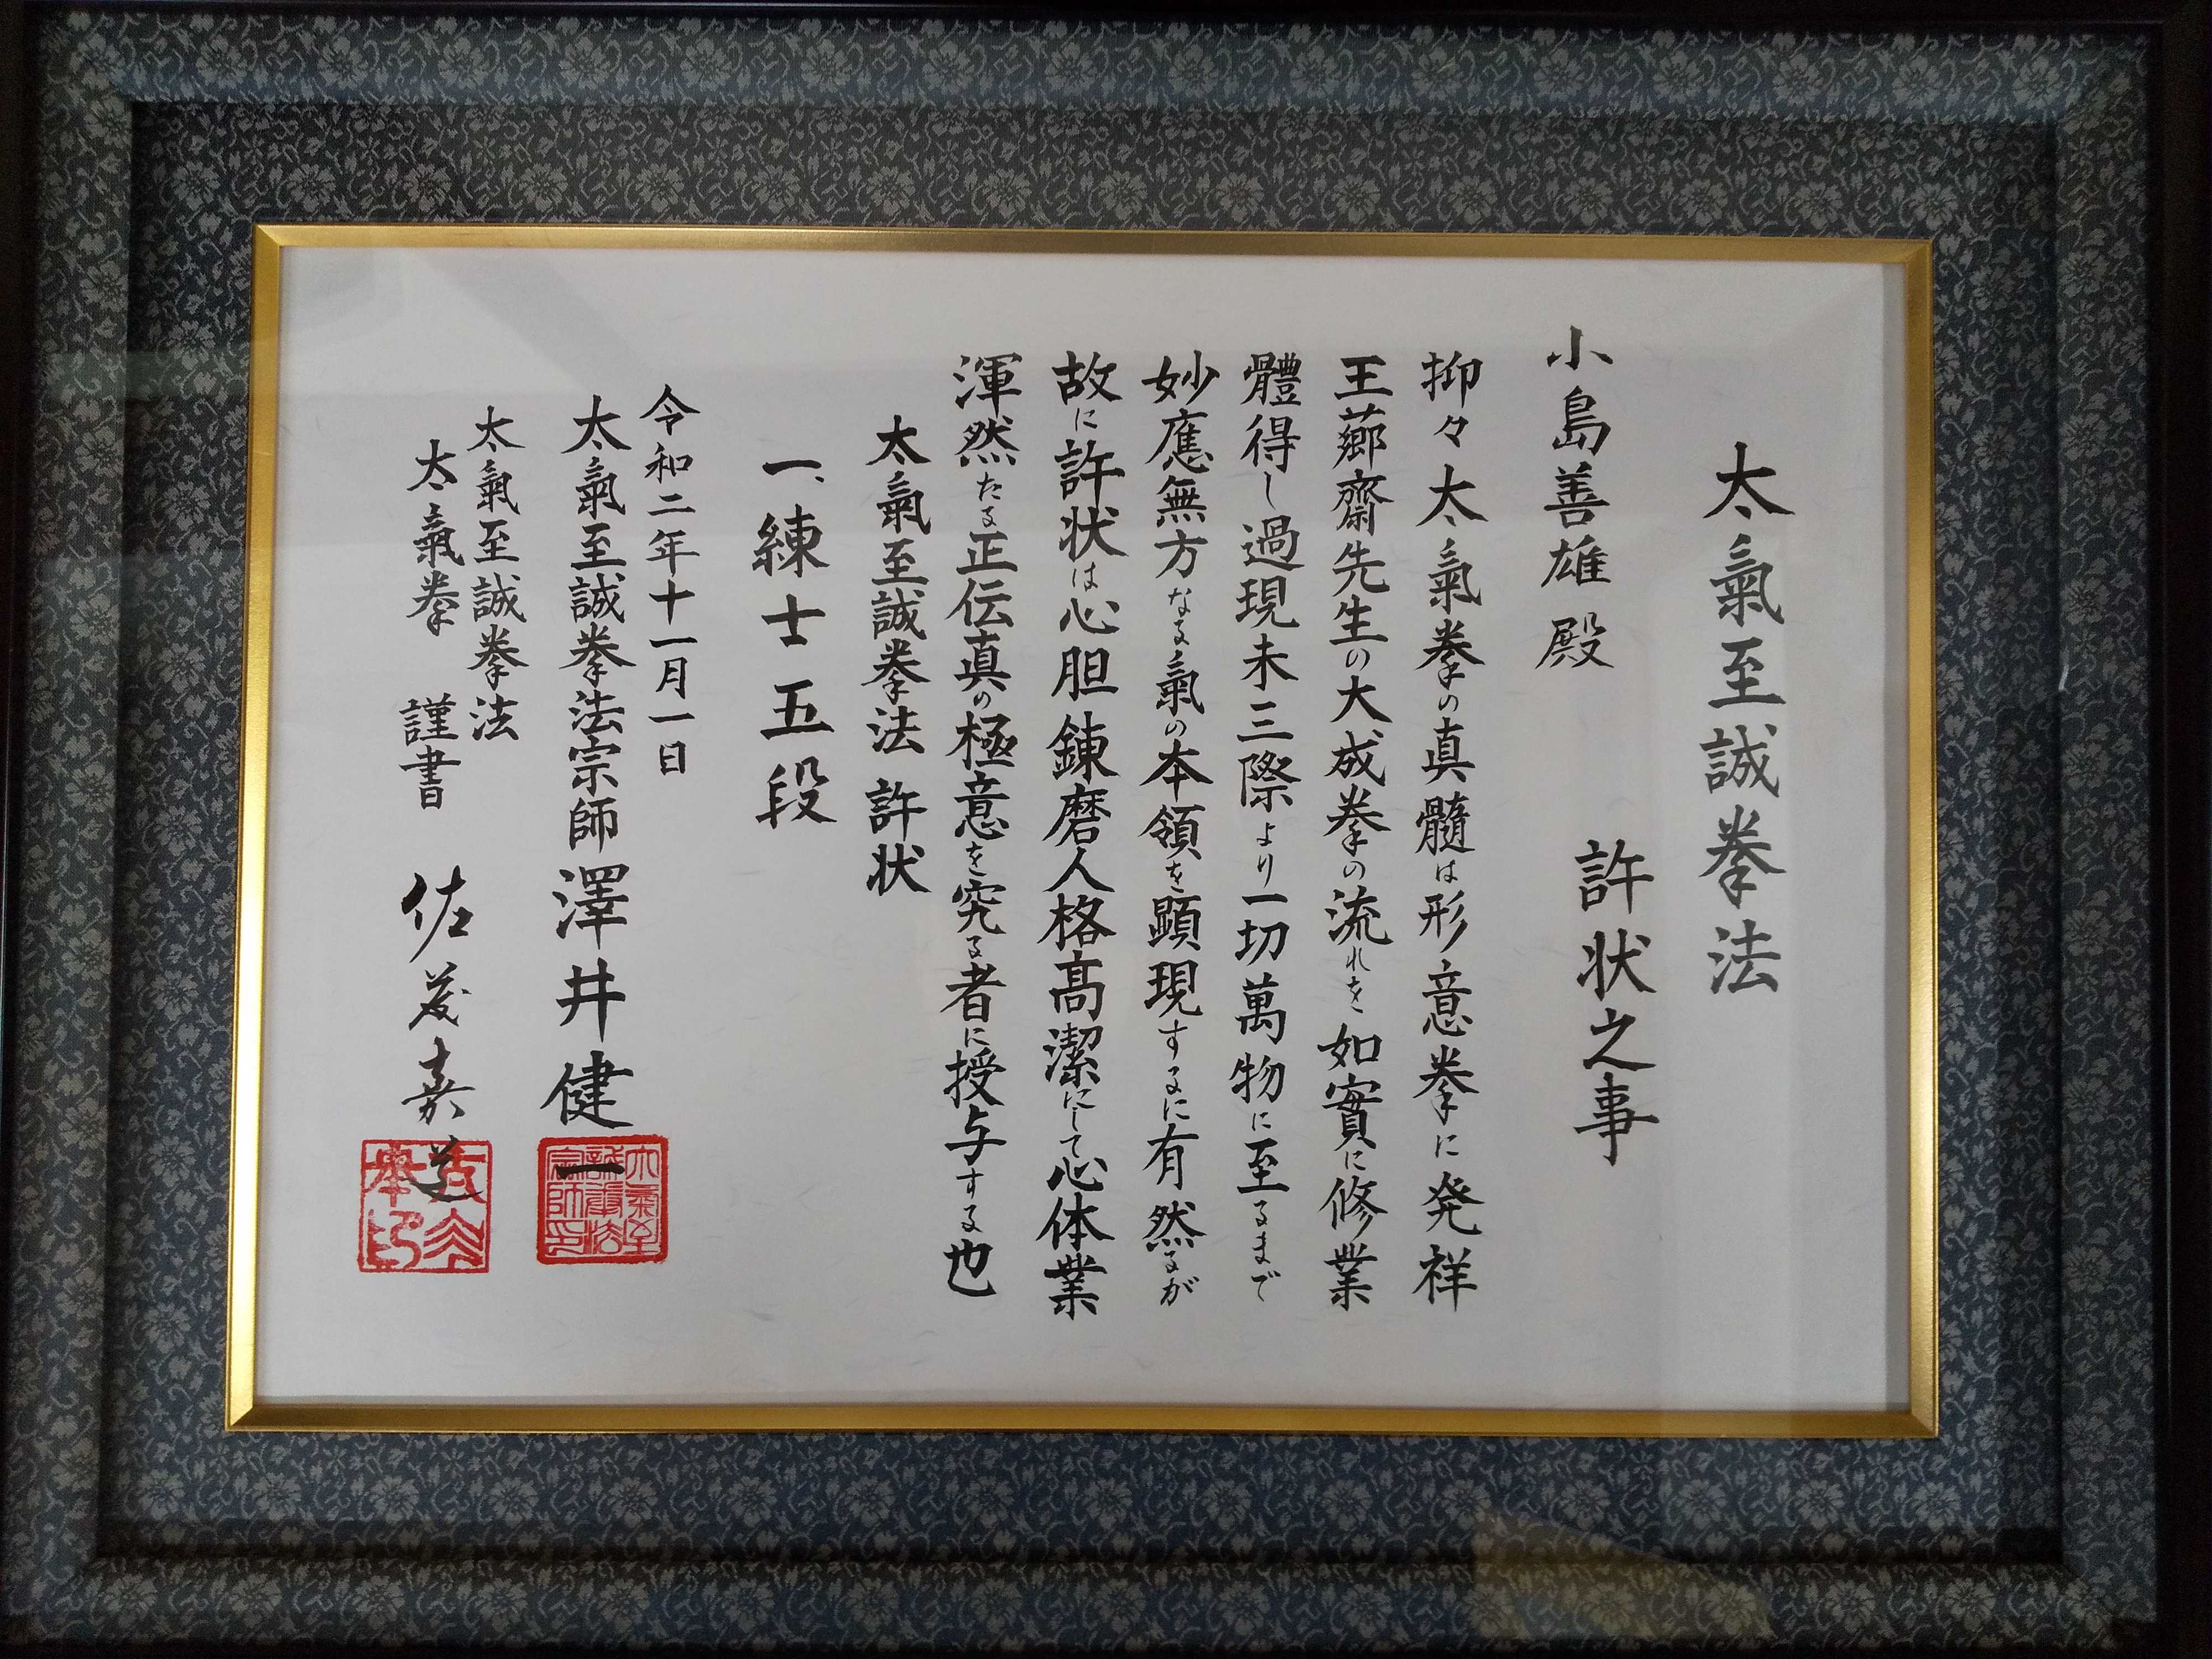 太氣至誠拳法
許状之事
小島善雄殿
抑々太氣拳の真髓は形意拳に発祥
王薌齋先生の大成拳の流れを如實に修業
體得し過現未三際より一切萬物に至るまで
妙應無方なる氣の本領を顕現するに有然るが
故に許状は心胆錬磨人格高潔にして心体業
渾然たる正伝真の極意を究る者に授与する也
太氣至誠拳法 許状
一、練士五段
令和二年十一月一日
太氣至誠拳法宗師 澤井健一
太氣至誠拳法
太氣拳 謹書 佐藤嘉道
太氣至誠拳法宗師印